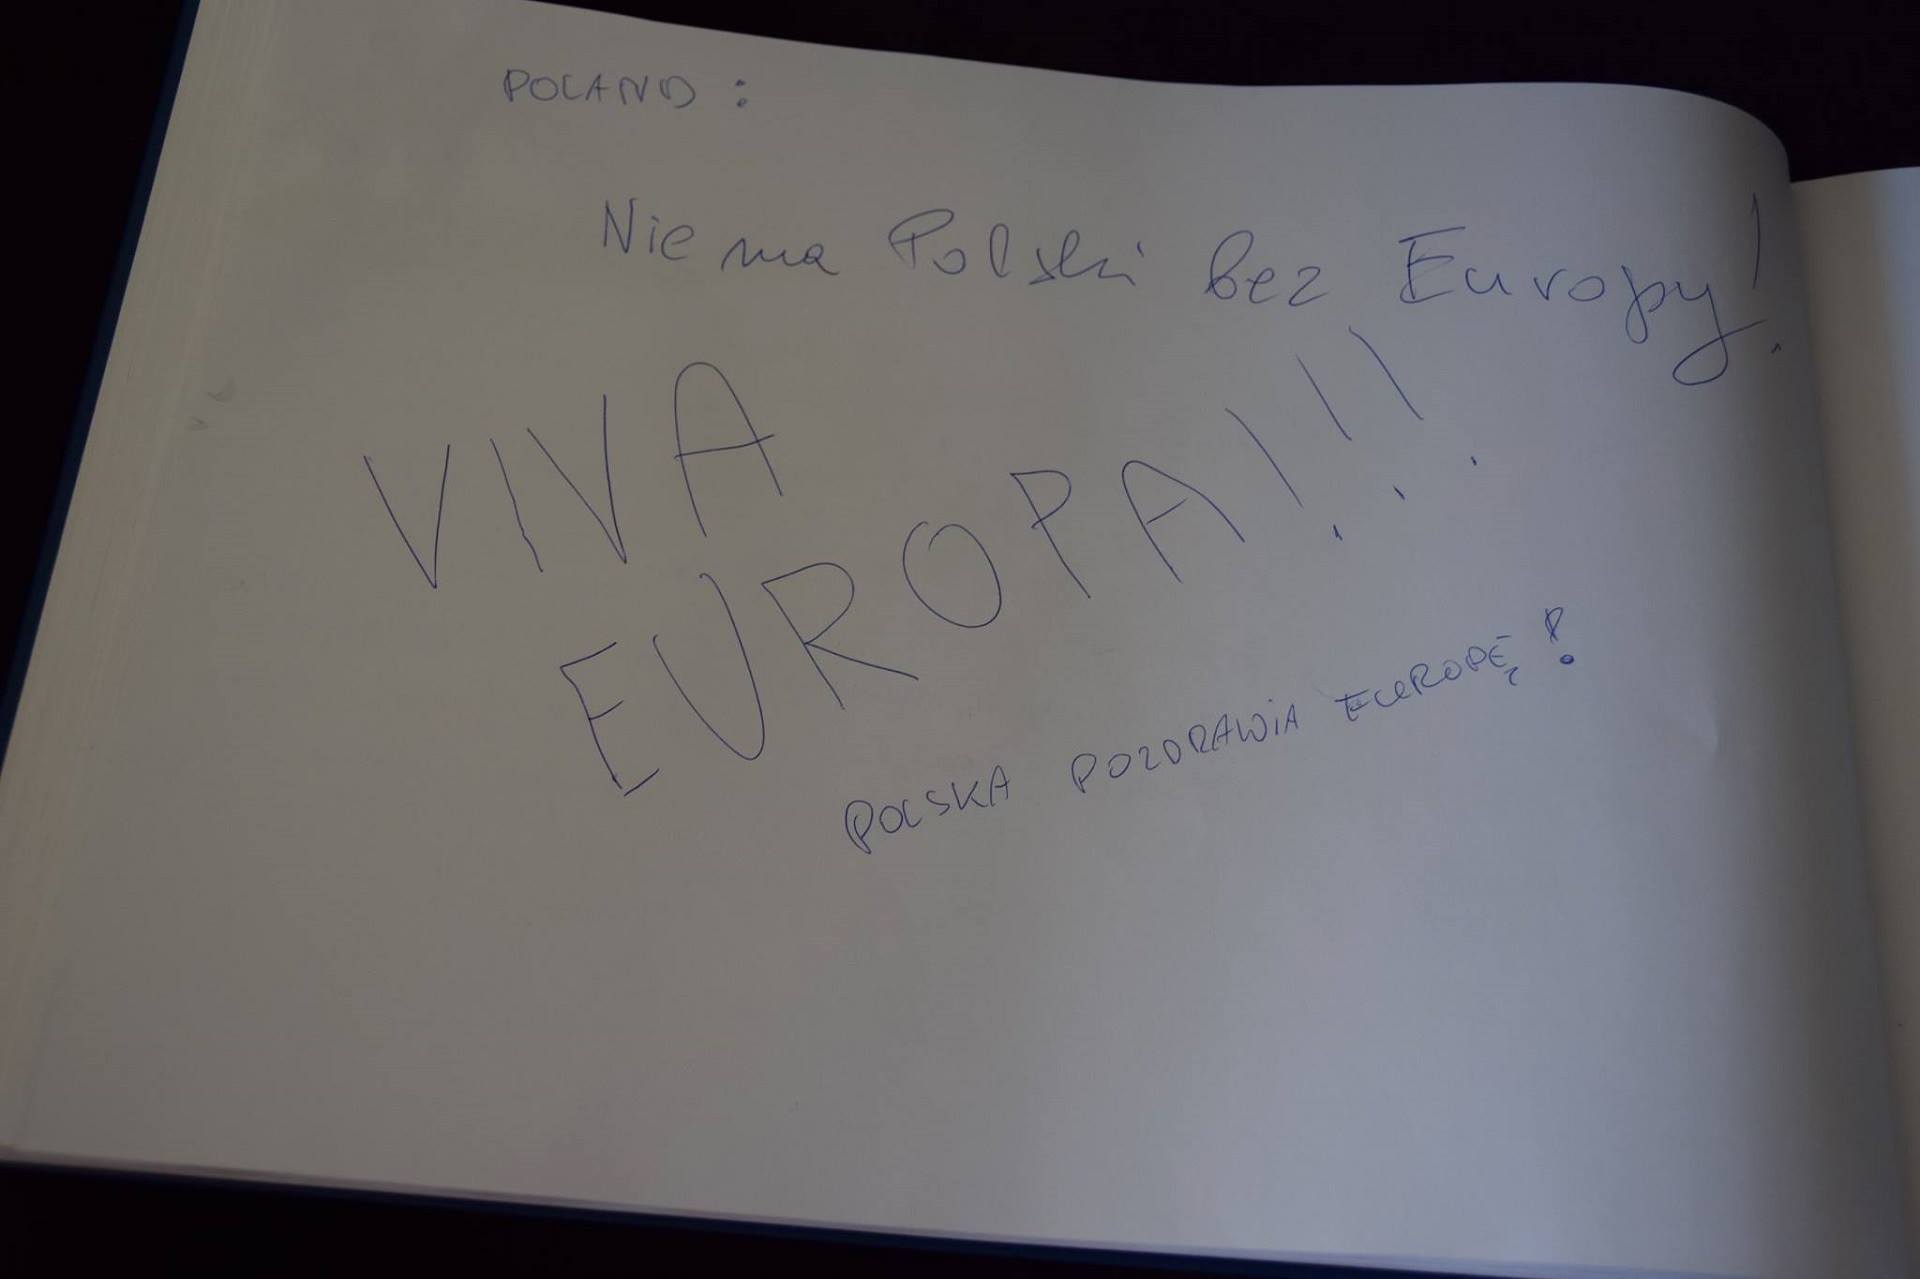 POLAND :
Nie ma Polski bez Europy!
VIVA
EUROPA!!!
POLSKA POZDRAWIA EUROPĘ!